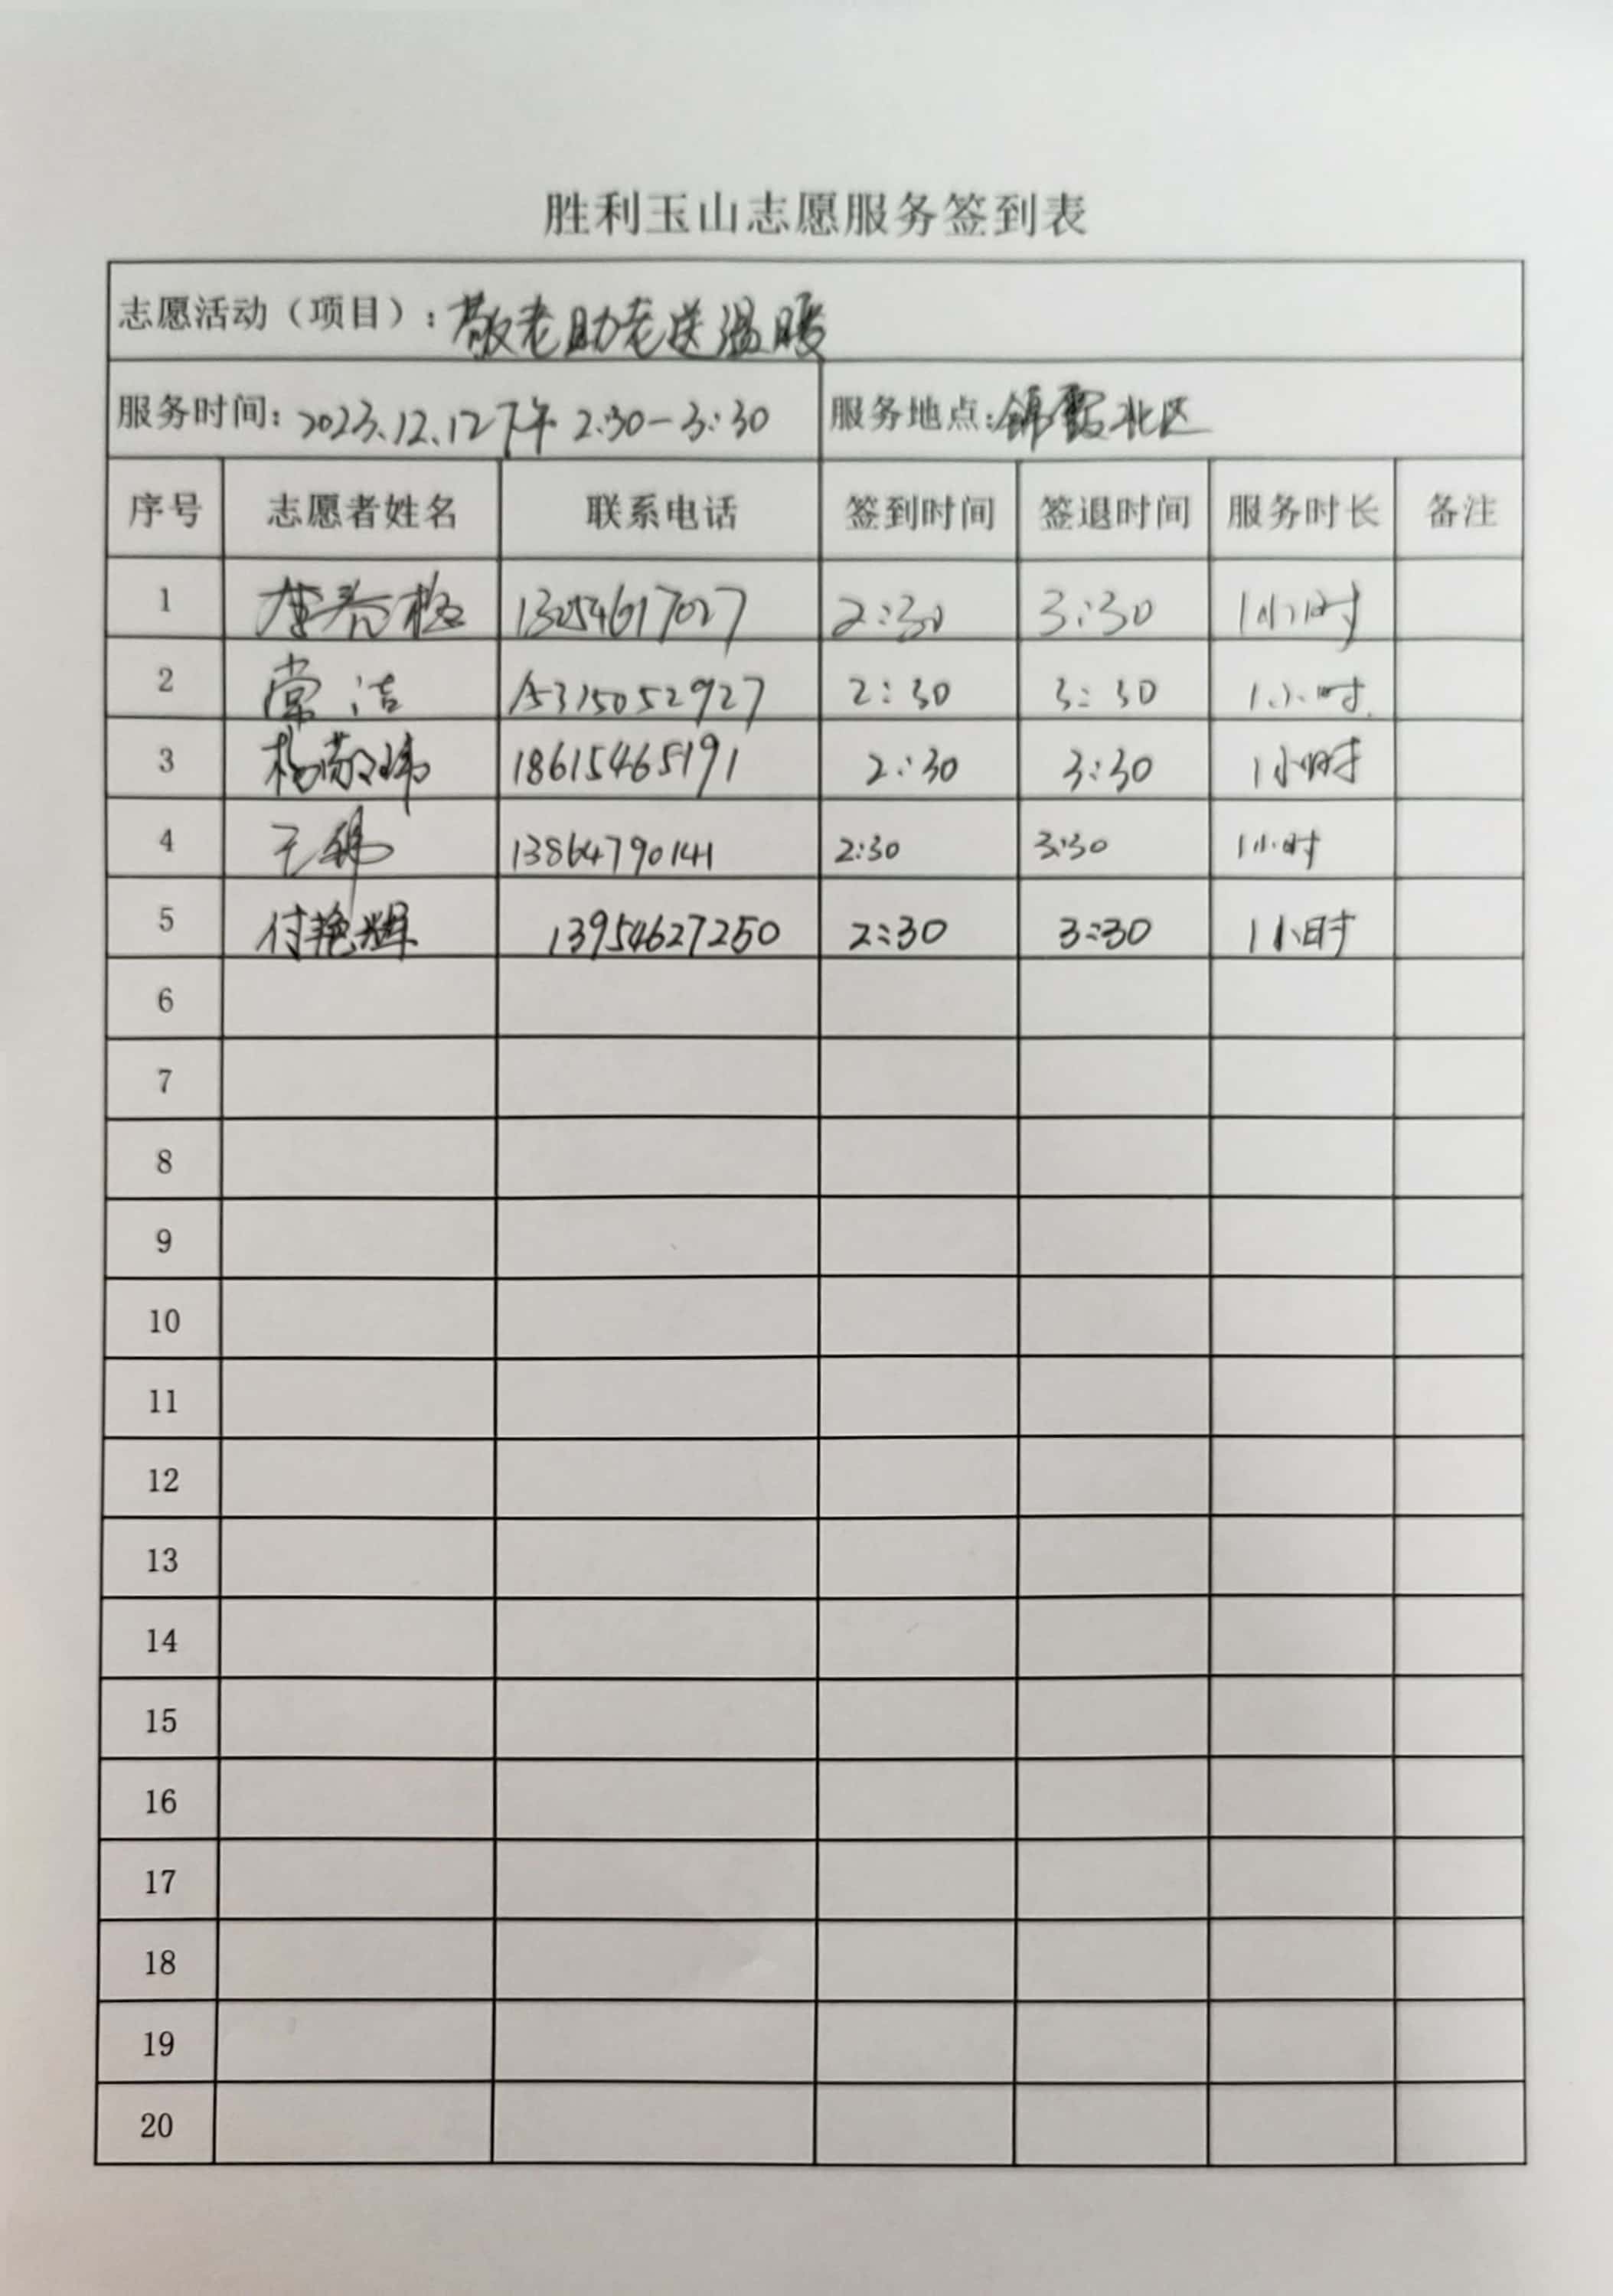 胜利玉山志愿服务签到表
志愿活动（项目）：敬老助老送温暖
服务时间：2023.12.12下午 2:30-3:30 服务地点：锦霞北区
序号 志愿者姓名 联系电话 签到时间 签退时间 服务时长 备注
1 13254617027 2:30 3:30 1小时
2 常洁 15315052927 2:30 3:30 1小时
3 杨敬玮 18615465191 2:30 3:30 1小时
4 13864790141 2:30 3:30 1小时
5 付艳辉 13954627250 2:30 3:30 1小时
6
7
8
9
10
11
12
13
14
15
16
17
18
19
20